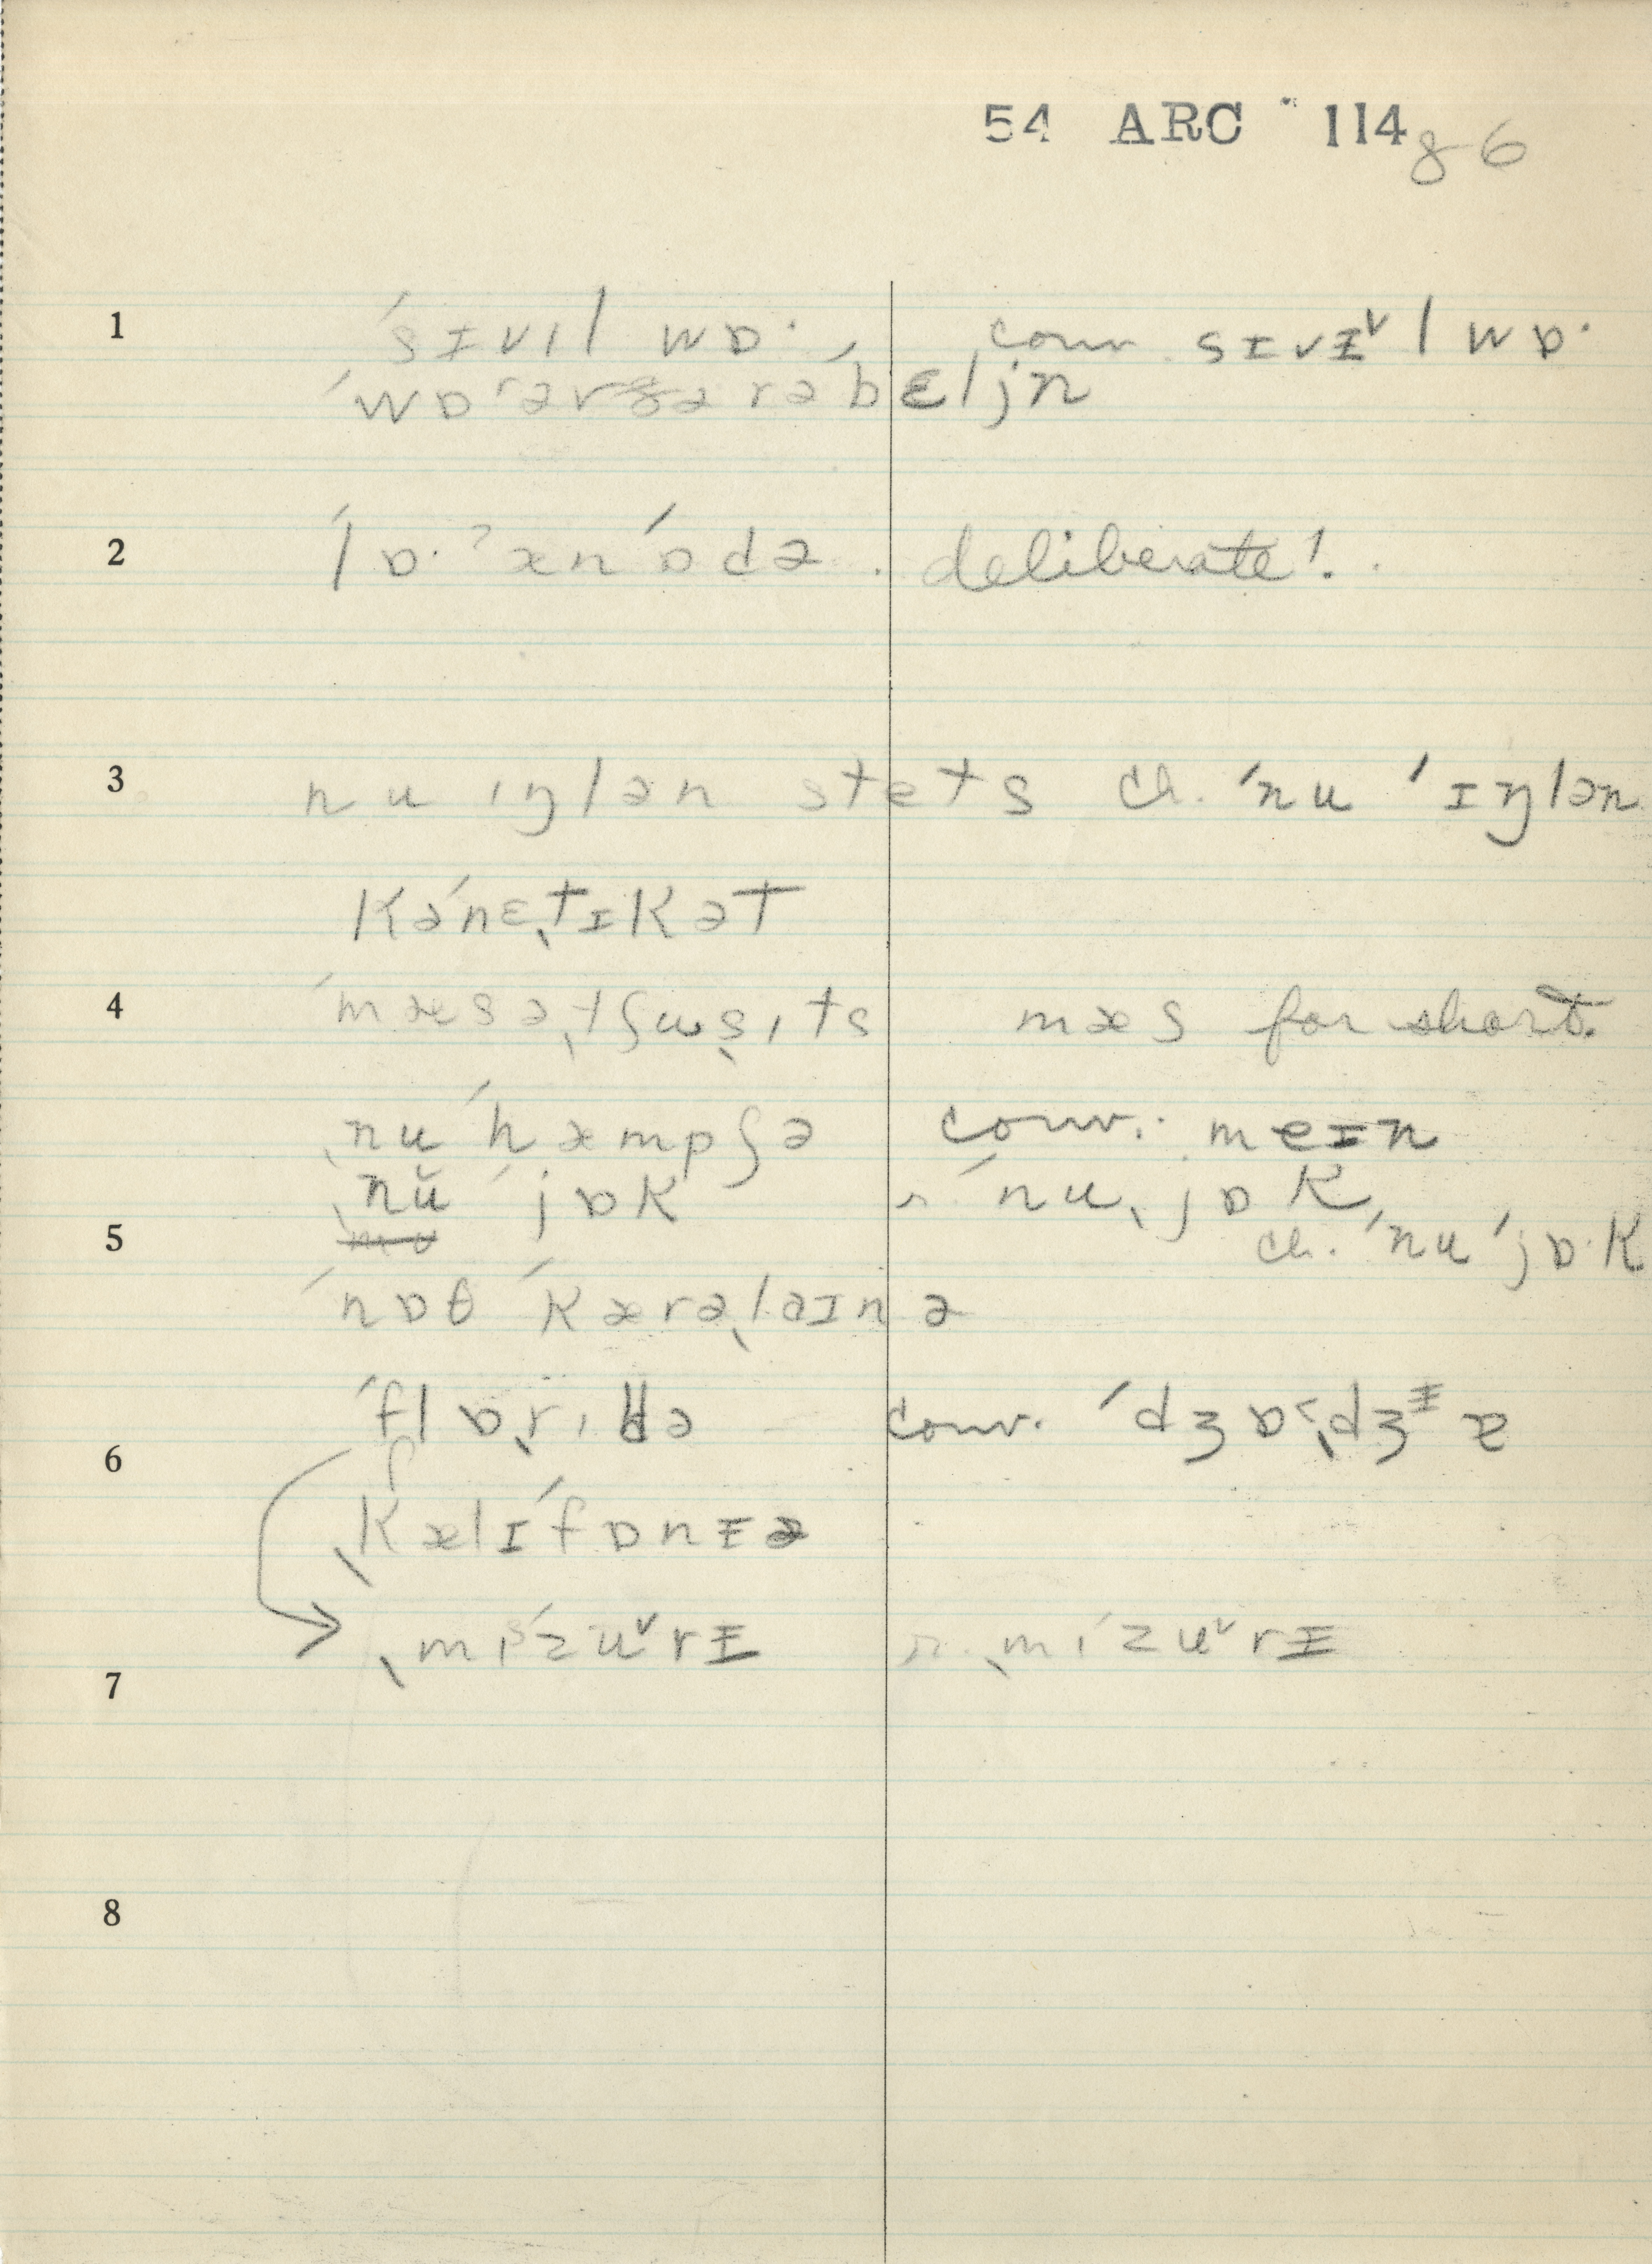 54 ARC 114 86
1 ˈsɪvɪl wɒ· conv. sɪvɪ˅l wɒ·
ˈwɒˈər rəˈbɛljn
2 ˈlɒ·ˀænˈɒdə. deliberate!
3 nu ɪŋlən stets ch. ˈnu ˈɪŋlən
kəˈnɛˌtɪkət
4 ˈmæsəˌtʃuˌsɪts mæs for short.
ˌnu ˈhæmpʃə conv.: meɪn
ˌnŭ ˈjɒk r. ˈnuˌjɒk
5 ch. ˈnu ˈjɒ·k
ˈnɒθ ˈkærəˌlaɪnə
ˈflɒrˌɪdə conv. ˈdʒɒˑˌdʒɪə
6
ˌkælɪˈfɒnɪə
ˌmɪˈzu˅rɪ r. ˌmɪˈzu˅rɪ
7
8